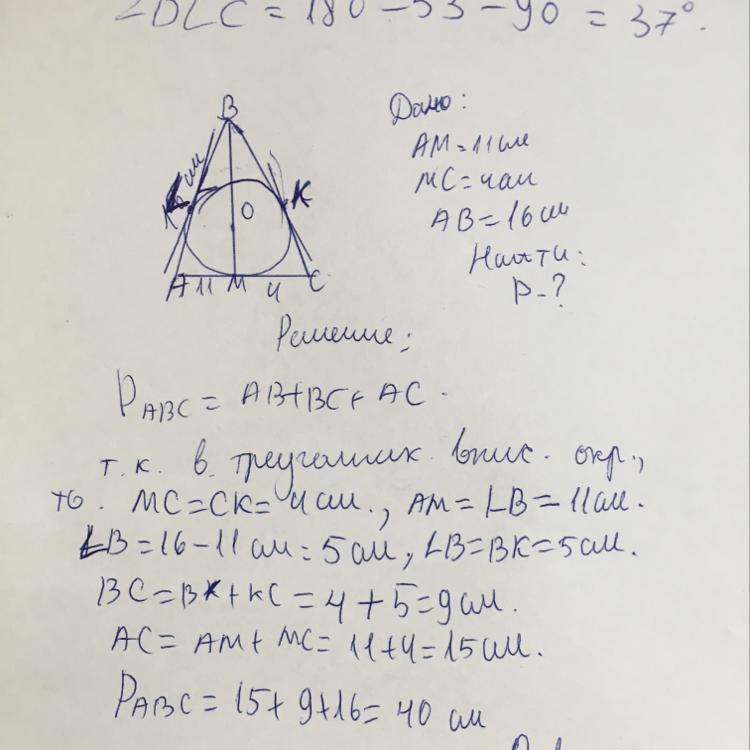 ∠DLC = 180 - 53 - 90 = 37°.
B
K
O
A 11 M 4 C
Дано:
AM = 11 см
MC = 4 см
AB = 16 см
Найти:
P - ?
Решение:
P ABC = AB + BC + AC.
т.к. в треугольник впис. окр.,
то. MC = CK = 4 см., AM = LB = 11 см.
LB = 16 - 11 см = 5 см, LB = BK = 5 см.
BC = BK + KC = 4 + 5 = 9 см.
AC = AM + MC = 11 + 4 = 15 см.
P ABC = 15 + 9 + 16 = 40 см